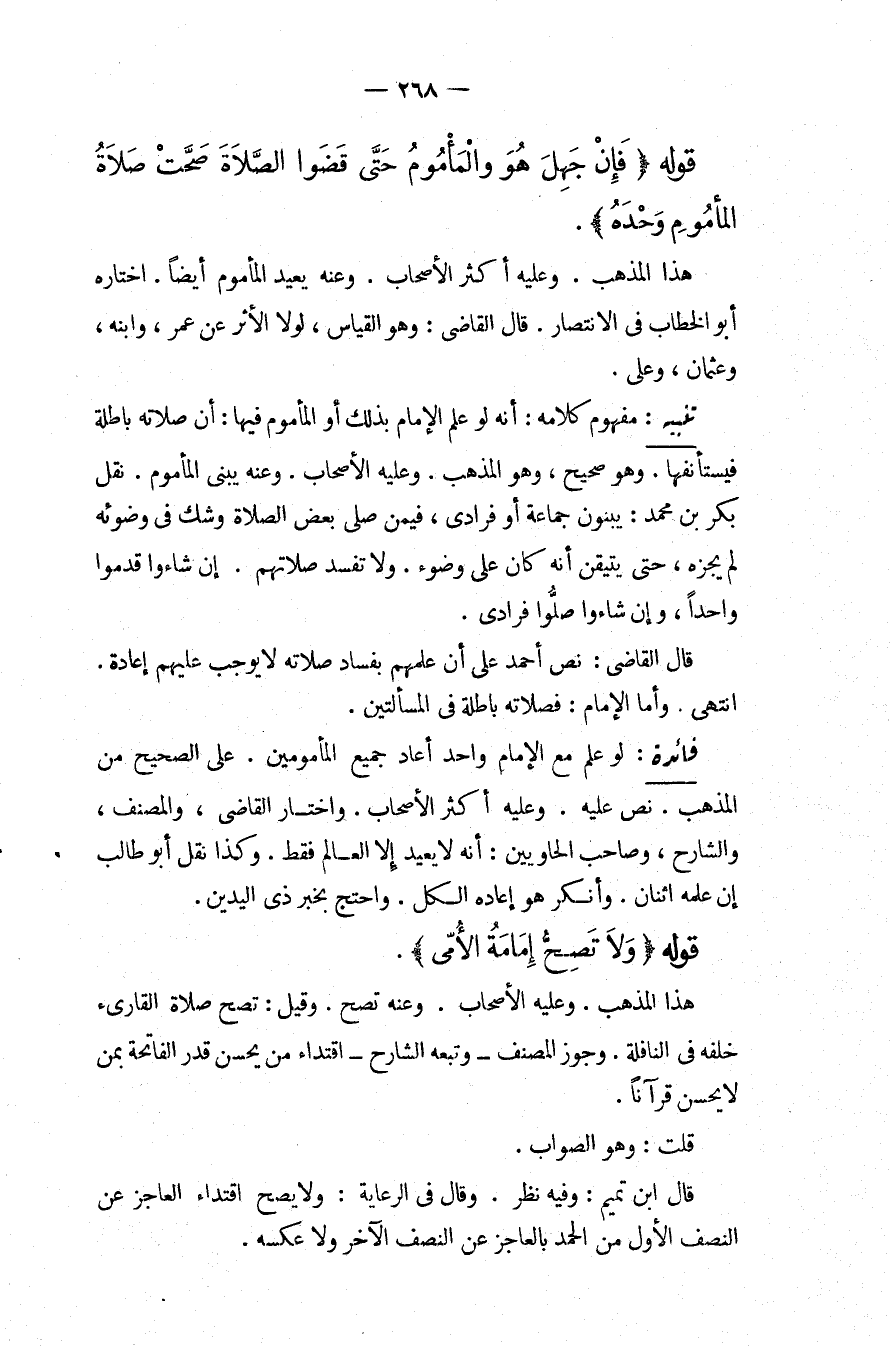 — ٢٦٨ —
قوله ﴿ فَإِنْ جَهِلَ هُوَ والْمَأْمُومُ حَتَّى قَضَوا الصَّلاَةَ صَحَّتْ صَلاَةُ
المأمُومِ وَحْدَهُ ﴾ .
هذا المذهب . وعليه أكثر الأصحاب . وعنه يعيد المأموم أيضاً . اختاره
أبو الخطاب فى الانتصار . قال القاضى : وهو القياس ، لولا الأثر عن عمر ، وابنه ،
وعثمان ، وعلى .
تنبيه : مفهوم كلامه : أنه لو علم الإمام بذلك أو المأموم فيها : أن صلاته باطلة
فيستأنفها . وهو صحيح ، وهو المذهب . وعليه الأصحاب . وعنه يبنى المأموم . نقل
بكر بن محمد : يبنون جماعة أو فرادى ، فيمن صلى بعض الصلاة وشك فى وضوئه
لم يجزه ، حتى يتيقن أنه كان على وضوء . ولا تفسد صلاتهم . إن شاءوا قدموا
واحداً ، وإن شاءوا صلُّوا فرادى .
قال القاضى : نص أحمد على أن علمهم بفساد صلاته لايوجب عليهم إعادة .
انتهى . وأما الإمام : فصلاته باطلة فى المسألتين .
فائدة : لو علم مع الإمام واحد أعاد جميع المأمومين . على الصحيح من
المذهب . نص عليه . وعليه أكثر الأصحاب . واختـار القاضى ، والمصنف ،
والشارح ، وصاحب الحاويين : أنه لايعيد إلا العـالم فقط . وكذا نقل أبو طالب
إن علمه اثنان . وأنـكر هو إعاده الـكل . واحتج بخبر ذى اليدين .
قوله ﴿ وَلاَ تَصِحُّ إِمَامَةُ الأُمِّى ﴾ .
هذا المذهب . وعليه الأصحاب . وعنه تصح . وقيل : تصح صلاة القارىء
خلفه فى النافلة . وجوز المصنف ــ وتبعه الشارح ــ اقتداء من يحسن قدر الفاتحة بمن
لايحسن قرآناً .
قلت : وهو الصواب .
قال ابن تميم : وفيه نظر . وقال فى الرعاية : ولايصح اقتداء العاجز عن
النصف الأول من الحمد بالعاجز عن النصف الآخر ولا عكسه .